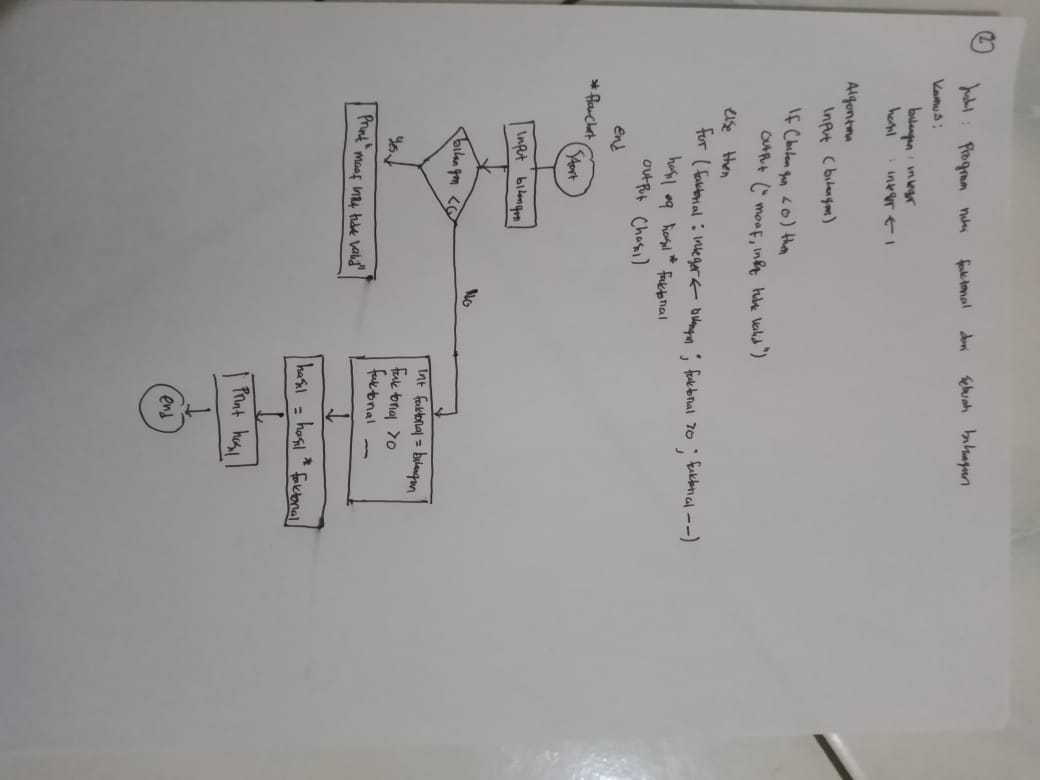 2
Judul : Program nilai faktorial dari sebuah bilangan
Kamus :
bilangan : integer
hasil : integer ← 1
Algoritma
Input (bilangan)
If (bilangan < 0) then
output ("maaf, input tidak valid")
else then
for (faktorial : integer ← bilangan ; faktorial > 0 ; faktorial --)
hasil eq hasil * faktorial
output (hasil)
end
* flowchart
Start
Input bilangan
bilangan < 0
No
Yes
Print "maaf input tidak valid"
Int faktorial = bilangan
faktorial > 0
faktorial --
hasil = hasil * faktorial
Print hasil
end